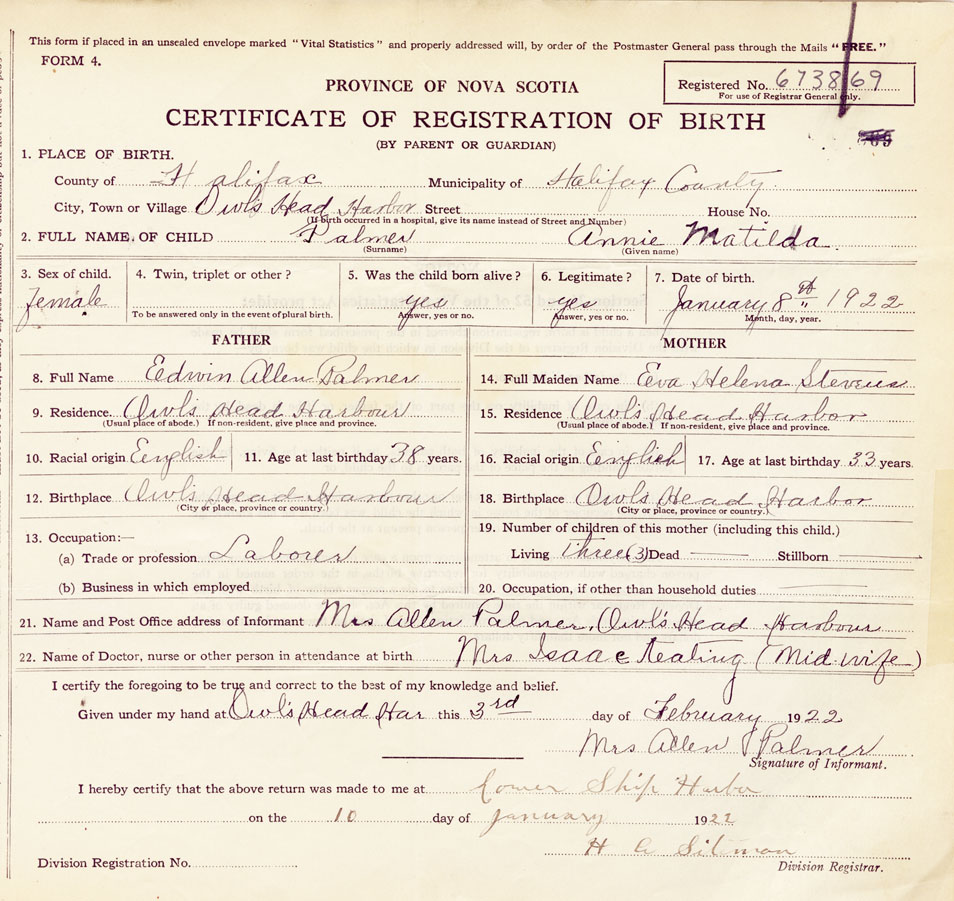 This form if placed in an unsealed envelope marked "Vital Statistics" and properly addressed will, by order of the Postmaster General pass through the Mails "FREE."
FORM 4.
Registered No. 6738169
For use of Registrar General only.
PROVINCE OF NOVA SCOTIA
CERTIFICATE OF REGISTRATION OF BIRTH
(BY PARENT OR GUARDIAN)
1. PLACE OF BIRTH.
County of Halifax Municipality of Halifax County.
City, Town or Village Owl's Head Harbor Street House No.
(If birth occurred in a hospital, give its name instead of Street and Number)
2. FULL NAME, OF CHILD Palmer Annie Matilda
(Surname) (Given name)
3. Sex of child. 4. Twin, triplet or other? 5. Was the child born alive? 6. Legitimate? 7. Date of birth.
Female yes yes January 8th 1922
To be answered only in the event of plural birth. Answer, yes or no. Answer, yes or no. Month, day, year.
FATHER MOTHER
8. Full Name Edwin Allen Palmer 14. Full Maiden Name Eva Helena Stevens
9. Residence. Owl's Head Harbour 15. Residence Owl's Head Harbor
(Usual place of abode.) If non-resident, give place and province. (Usual place of abode.) If non-resident, give place and province.
10. Racial origin English 11. Age at last birthday 38 years. 16. Racial origin English 17. Age at last birthday 33 years.
12. Birthplace Owl's Head Harbour 18. Birthplace Owl's Head Harbor
(City or place, province or country.) (City or place, province or country.)
13. Occupation:— 19. Number of children of this mother (including this child.)
(a) Trade or profession Laborer Living Three (3) Dead Stillborn
(b) Business in which employed 20. Occupation, if other than household duties
21. Name and Post Office address of Informant Mrs Allen Palmer, Owl's Head Harbour
22. Name of Doctor, nurse or other person in attendance at birth Mrs Isaac Keating (Midwife)
I certify the foregoing to be true and correct to the best of my knowledge and belief.
Given under my hand at Owl's Head Har this 3rd day of February 1922
Mrs Allen Palmer
Signature of Informant.
I hereby certify that the above return was made to me at Lower Ship Harbor
on the 10 day of January 1922
H A
Division Registration No. Division Registrar.